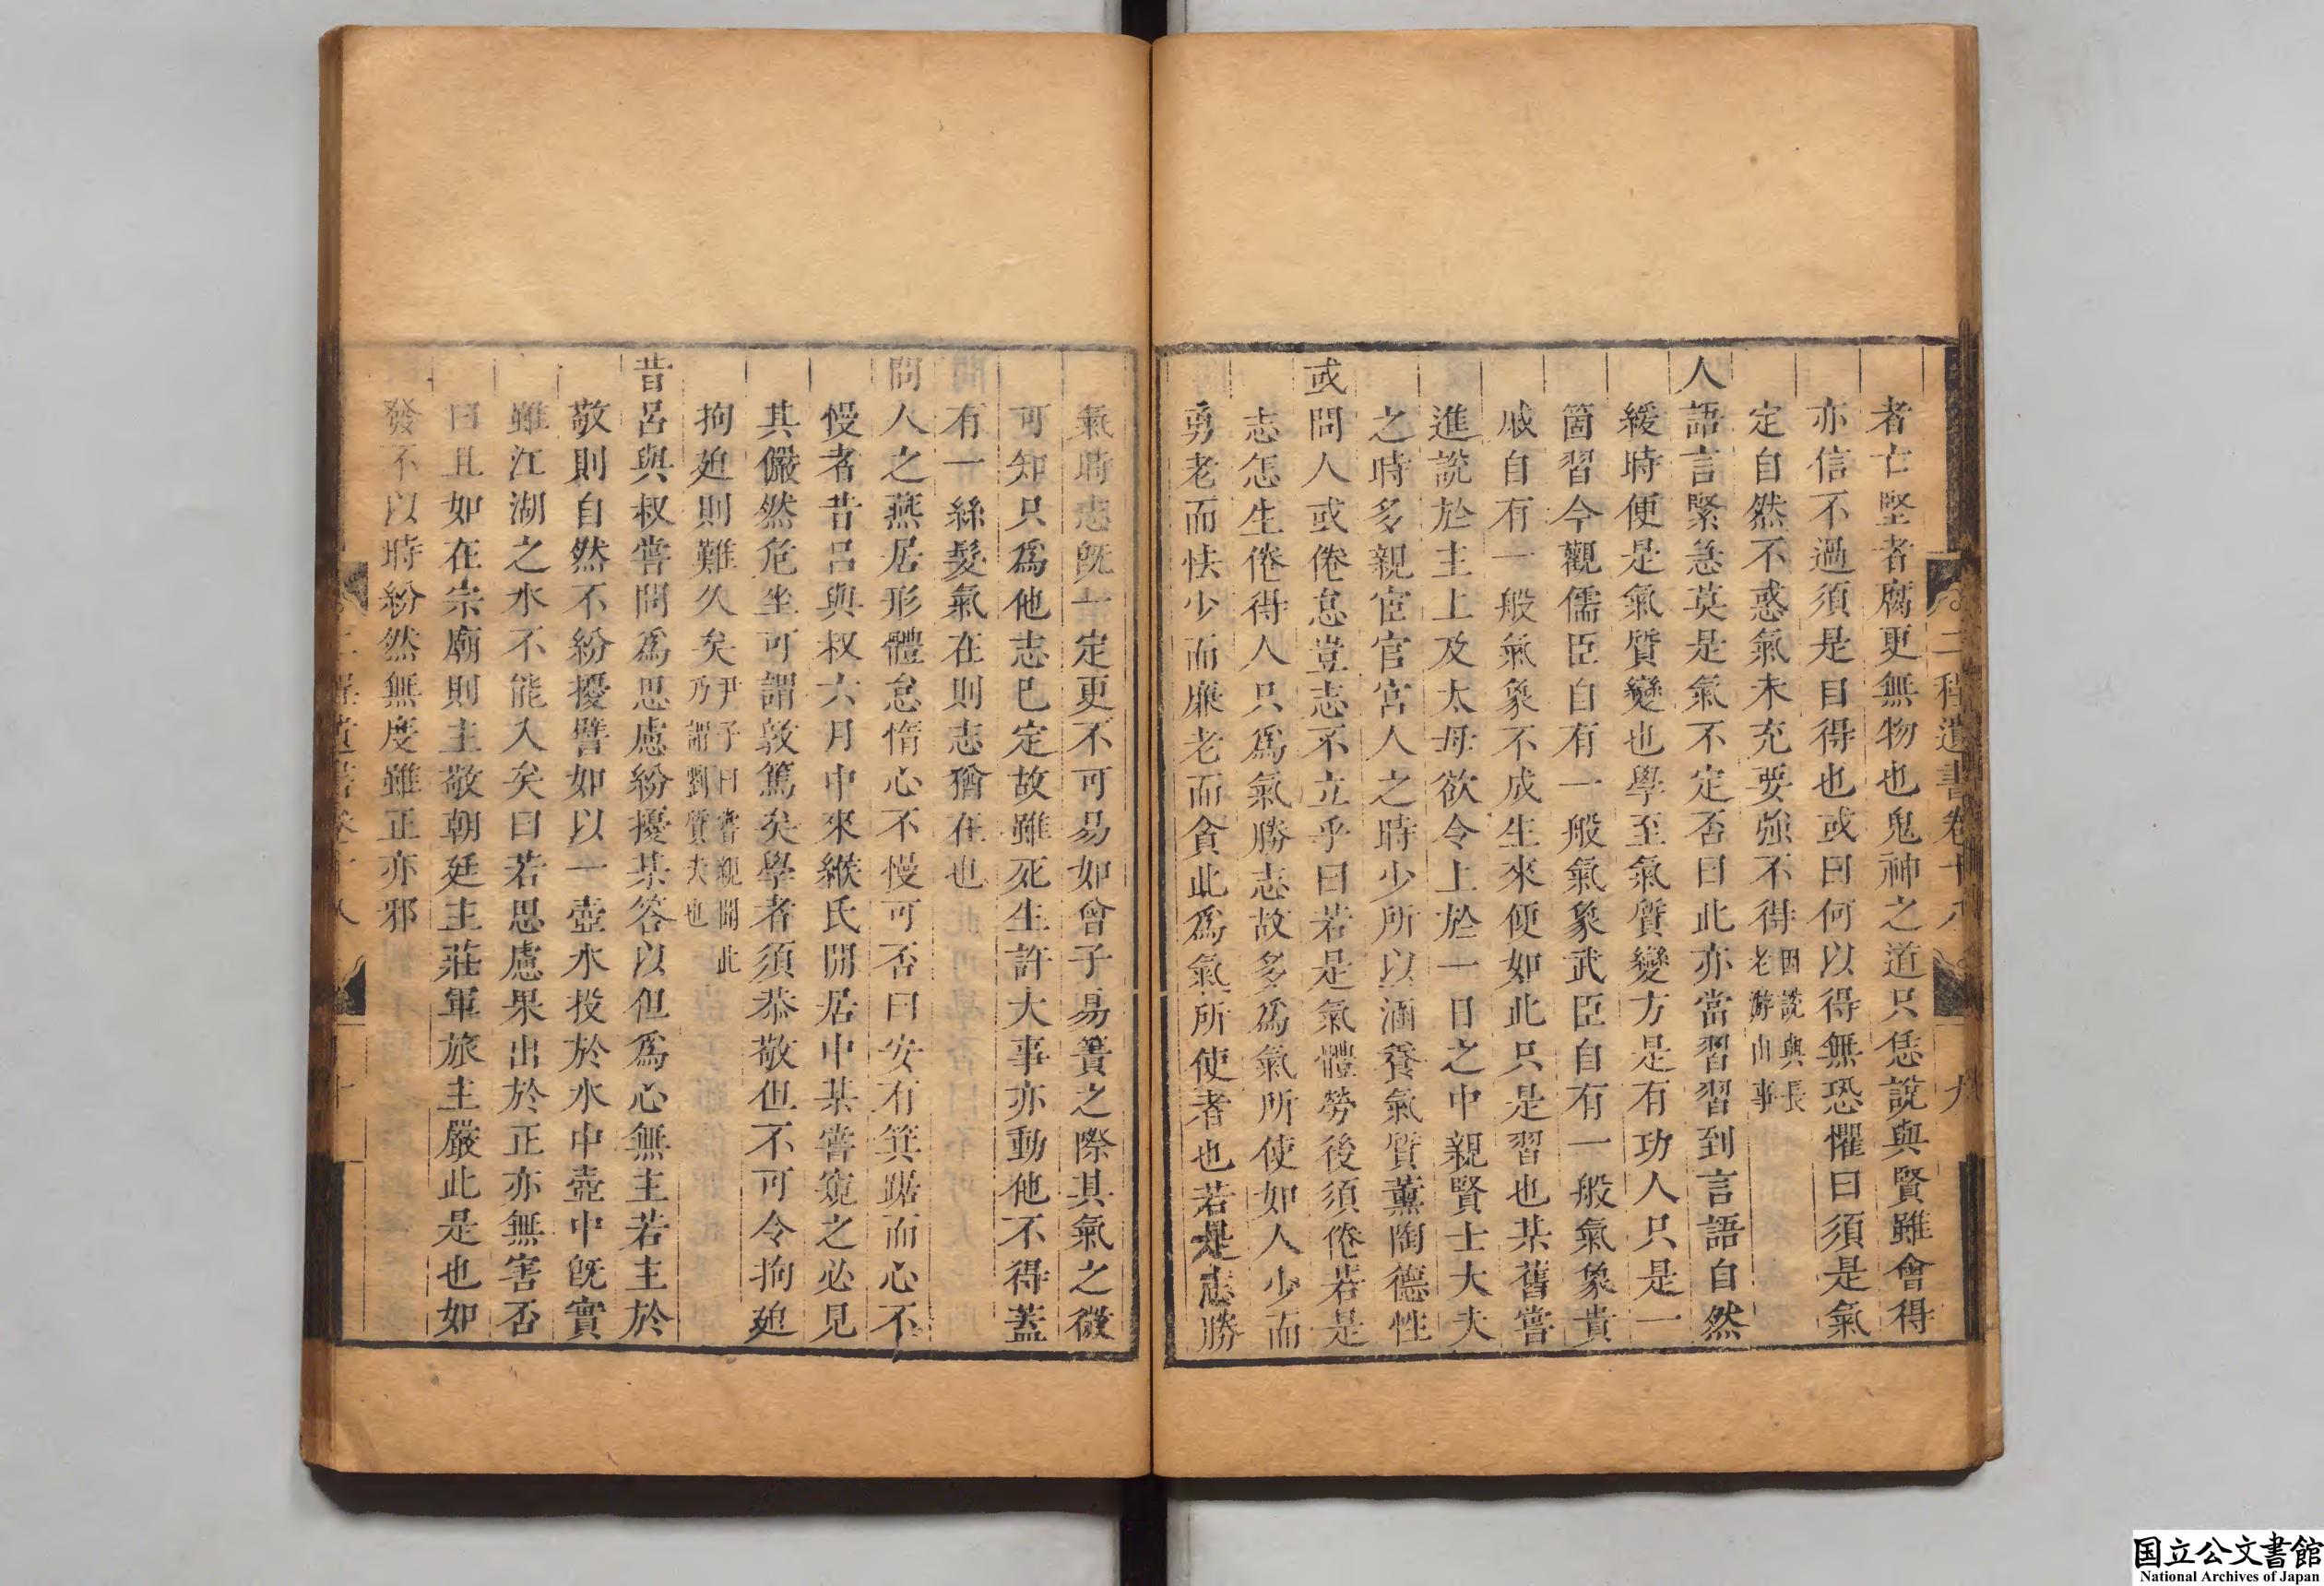 者亡堅者腐更無物也鬼神之道只恁說與賢雖會得
亦信不過須是自得也或曰何以得無恐懼曰須是氣
定自然不惑氣未充要強不得因說與長老游山事
人語言緊急莫是氣不定否曰此亦當習習到言語自然
緩時便是氣質變也學至氣質變方是有功人只是一
箇習今觀儒臣自有一般氣象武臣自有一般氣象貴
戚自有一般氣象不成生來便如此只是習也某舊嘗
進說於主上及太母欲令上於一日之中親賢士大夫
之時多親宦官宮人之時少所以涵養氣質薰陶德性
或問人或倦怠豈志不立乎曰若是氣體勞後須倦若是
志怎生倦得人只爲氣勝志故多爲氣所使如人少而
勇老而怯少而廉老而貪此爲氣所使者也若是志勝
氣時志既一定更不可易如曾子易簀之際其氣之微
可知只爲他志已定故雖死生許大事亦動他不得蓋
有一絲髮氣在則志猶在也
問人之燕居形體怠惰心不慢可否曰安有箕踞而心不
慢者昔呂與叔六月中來緱氏閒居中某嘗窺之必見
其儼然危坐可謂敦篤矣學者須恭敬但不可令拘廹
拘廹則難久矣尹子曰嘗親聞此乃謂劉質夫也
昔呂與叔嘗問爲思慮紛擾某答以但爲心無主若主於
敬則自然不紛擾譬如以一壺水投於水中壺中既實
雖江湖之水不能入矣曰若思慮果出於正亦無害否
曰且如在宗廟則主敬朝廷主莊軍旅主嚴此是也如
發不以時紛然無度雖正亦邪
二程遺書卷十八
九
国立公文書館
National Archives of Japan